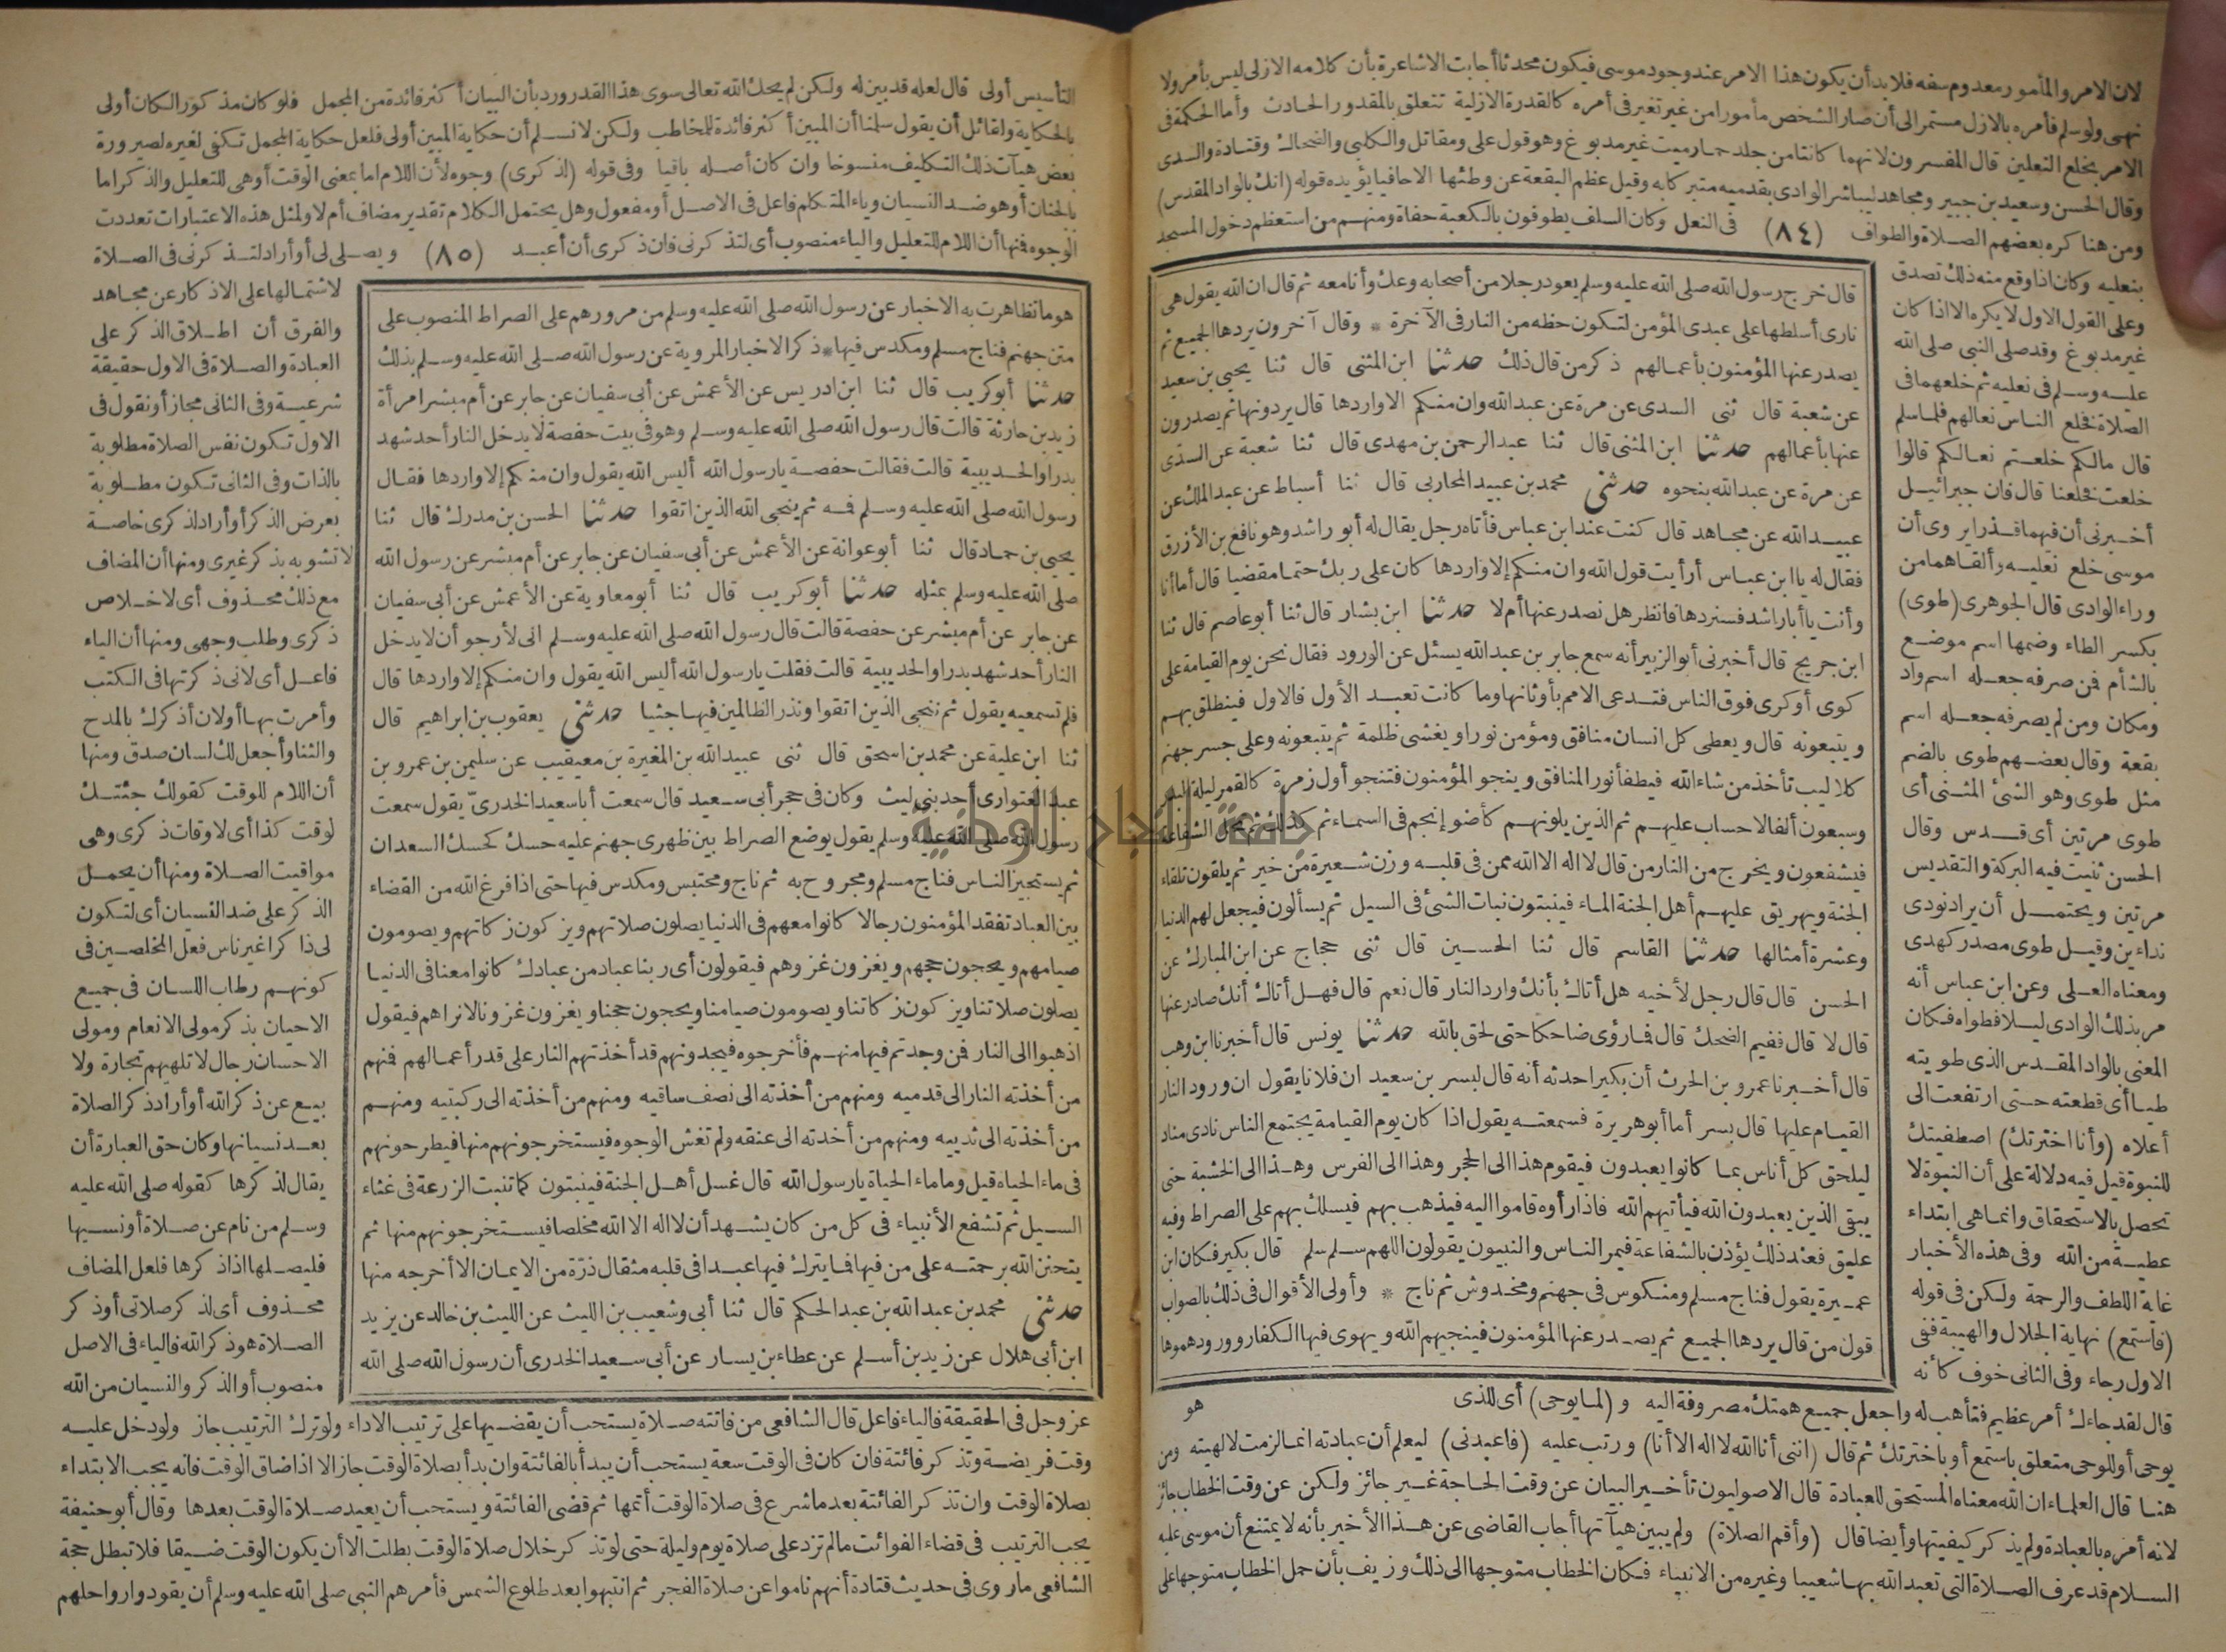 لان الامر والمأمور معدوم سفه فلا بد أن يكون هذا الامر عند وجود موسى فيكون محدثا أجابت الاشاعرة بأن كلامه الازلى ليس بأمر ولا
نهى ولو سلم فأمره بالازل مستمر الى أن صار الشخص مأمورا من غير تغير فى أمره كالقدرة الازلية تتعلق بالمقدور الحادث وأما الحكمة فى
الامر بخلع النعلين قال المفسرون لانهما كانتا من جلد حمار ميت غير مدبوغ وهو قول على ومقاتل والكلبى والضحاك وقتادة والسدى
وقال الحسن وسعيد بن جبير ومجاهد ليباشر الوادى بقدميه متبركا به وقيل عظم البقعة عن وطئها الا حافيا يؤيده قوله (انك بالواد المقدس)
ومن هنا كره بعضهم الصلاة والطواف (٨٤) فى النعل وكان السلف يطوفون بالكعبة حفاة ومنهم من استعظم دخول المسجد
بنعليه وكان اذا وقع منه ذلك تصدق
وعلى القول الاول لا يكره الا اذا كان
غير مدبوغ وقد صلى النبى صلى الله
عليه وسلم فى نعليه ثم خلعهما فى
الصلاة فخلع الناس نعالهم فلما سلم
قال مالكم خلعتم نعالكم قالوا
خلعت فخلعنا قال فان جبرائيل
أخبرنى أن فيهما قذرا يروى أن
موسى خلع نعليه وألقاهما من
وراء الوادى قال الجوهرى (طوى)
بكسر الطاء وضمها اسم موضع
بالشأم فمن صرفه جعله اسم واد
ومكان ومن لم يصرفه جعله اسم
بقعة وقال بعضهم طوى بالضم
مثل طوى وهو الشئ المثنى أى
طوى مرتين أى قدس وقال
الحسن ثنيت فيه البركة والتقديس
مرتين ويحتمل أن يراد نودى
نداءين وقيل طوى مصدر كهدى
ومعناه العلى وعن ابن عباس أنه
مر بذلك الوادى ليلا فطواه فكان
المعنى بالواد المقدس الذى طويته
طيا أى قطعته حتى ارتفعت الى
أعلاه (وأنا اخترتك) اصطفيتك
للنبوة قيل فيه دلالة على أن النبوة لا
تحصل بالاستحقاق وانما هى ابتداء
عطية من الله وفى هذه الأخبار
غاية اللطف والرحمة ولكن فى قوله
(فاستمع) نهاية الجلال والهيبة ففى
الاول رجاء وفى الثانى خوف كأنه
قال خرج رسول الله صلى الله عليه وسلم يعود رجلا من أصحابه وعك وأنا معه ثم قال ان الله يقول هى
نارى أسلطها على عبدى المؤمن لتكون حظه من النار فى الآخرة * وقال آخرون يردها الجميع ثم
يصدر عنها المؤمنون بأعمالهم ذكر من قال ذلك حدثنا ابن المثنى قال ثنا يحيى بن سعيد
عن شعبة قال ثنى السدى عن مرة عن عبد الله وان منكم الا واردها قال يردونها ثم يصدرون
عنها بأعمالهم حدثنا ابن المثنى قال ثنا عبد الرحمن بن مهدى قال ثنا شعبة عن السدى
عن مرة عن عبد الله بنحوه حدثنى محمد بن عبيد المحاربى قال ثنا أسباط عن عبد الملك عن
عبيد الله عن مجاهد قال كنت عند ابن عباس فأتاه رجل يقال له أبو راشد وهو نافع بن الأزرق
فقال له يا ابن عباس أرأيت قول الله وان منكم إلا واردها كان على ربك حتما مقضيا قال أما أنا
وأنت يا أبا راشد فسنردها فانظر هل نصدر عنها أم لا حدثنا ابن بشار قال ثنا أبو عاصم قال ثنا
ابن جريج قال أخبرنى أبو الزبير أنه سمع جابر بن عبد الله يسئل عن الورود فقال نحن يوم القيامة على
كوى أو كرى فوق الناس فتدعى الامم بأوثانها وما كانت تعبد الأول فالاول فينطلق بهم
ويتبعونه قال ويعطى كل انسان منافق ومؤمن نورا ويغشى ظلمة ثم يتبعونه وعلى جسر جهنم
كلاليب تأخذ من شاء الله فيطفأ نور المنافق وينجو المؤمنون فتنجو أول زمرة كالقمر ليلة البدر
وسبعون ألفا لا حساب عليهم ثم الذين يلونهم كأضوإ نجم فى السماء ثم كذلك ثم تحل الشفاعة
فيشفعون ويخرج من النار من قال لا اله الا الله ممن فى قلبه وزن شعيرة من خير ثم يلقون تلقاء
الجنة ويهريق عليهم أهل الجنة الماء فينبتون نبات الشئ فى السيل ثم يسألون فيجعل لهم الدنيا
وعشرة أمثالها حدثنا القاسم قال ثنا الحسين قال ثنى حجاج عن ابن المبارك عن
الحسن قال قال رجل لأخيه هل أتاك بأنك وارد النار قال نعم قال فهل أتاك أنك صادر عنها
قال لا قال ففيم الضحك قال فما رؤى ضاحكا حتى لحق بالله حدثنا يونس قال أخبرنا ابن وهب
قال أخبرنا عمرو بن الحرث أن بكيرا حدثه أنه قال لبسر بن سعيد ان فلانا يقول ان ورود النار
القيام عليها قال بسر أما أبو هريرة فسمعته يقول اذا كان يوم القيامة يجتمع الناس نادى مناد
ليلحق كل أناس بما كانوا يعبدون فيقوم هذا الى الحجر وهذا الى الفرس وهذا الى الخشبة حتى
يبقى الذين يعبدون الله فيأتيهم الله فاذا رأوه قاموا اليه فيذهب بهم فيسلك بهم على الصراط وفيه
عليق فعند ذلك يؤذن بالشفاعة فيمر الناس والنبيون يقولون اللهم سلم سلم قال بكير فكان ابن
عميرة يقول فناج مسلم ومنكوس فى جهنم ومخدوش ثم ناج * وأولى الأقوال فى ذلك بالصواب
قول من قال يردها الجميع ثم يصدر عنها المؤمنون فينجيهم الله ويهوى فيها الكفار وورودهموها
قال لقد جاءك أمر عظيم فتأهب له واجعل جميع همتك مصروفة اليه و (لما يوحى) أى للذى هو
يوحى أو للوحى متعلق باستمع أو باخترتك ثم قال (اننى أنا الله لا اله الا أنا) ورتب عليه (فاعبدنى) ليعلم أن عبادته انما لزمت لالهيته ومن
هنا قال العلماء ان الله معناه المستحق للعبادة قال الاصوليون تأخير البيان عن وقت الحاجة غير جائز ولكن عن وقت الخطاب جائز
لانه أمره بالعبادة ولم يذكر كيفيتها وأيضا قال (وأقم الصلاة) ولم يبين هيآتها أجاب القاضى عن هذا الأخير بأنه لا يمتنع أن موسى عليه
السلام قد عرف الصلاة التى تعبد الله بها شعيبا وغيره من الانبياء فكان الخطاب متوجها الى ذلك وزيف بأن حمل الخطاب متوجها على
التأسيس أولى قال لعله قد بين له ولكن لم يحك الله تعالى سوى هذا القدر ورد بأن البيان أكثر فائدة من المجمل فلو كان مذكورا لكان أولى
بالحكاية ولقائل أن يقول سلمنا أن المبين أكثر فائدة للمخاطب ولكن لا نسلم أن حكاية المبين أولى فلعل حكاية المجمل تكفى لغيره لصيرورة
بعض هيآت ذلك التكليف منسوخا وان كان أصله باقيا وفى قوله (لذكرى) وجوه لأن اللام اما بمعنى الوقت أو هى للتعليل والذكر اما
بالجنان أو هو ضد النسيان وياء المتكلم فاعل فى الاصل أو مفعول وهل يحتمل الكلام تقدير مضاف أم لا ولمثل هذه الاعتبارات تعددت
الوجوه فمنها أن اللام للتعليل والياء منصوب أى لتذكرنى فان ذكرى أن أعبد (٨٥) ويصلى لى أو أراد لتذكرنى فى الصلاة
لاشتمالها على الاذكار عن مجاهد
والفرق أن اطلاق الذكر على
العبادة والصلاة فى الاول حقيقة
شرعية وفى الثانى مجاز أو نقول فى
الاول تكون نفس الصلاة مطلوبة
بالذات وفى الثانى تكون مطلوبة
بعرض الذكر أو أراد لذكرى خاصة
لا تشوبه بذكر غيرى ومنها أن المضاف
مع ذلك محذوف أى لاخلاص
ذكرى وطلب وجهى ومنها أن الياء
فاعل أى لانى ذكرتها فى الكتب
وأمرت بها أو لان أذكرك بالمدح
والثنا وأجعل لك لسان صدق ومنها
أن اللام للوقت كقولك جئتك
لوقت كذا أى لاوقات ذكرى وهى
مواقيت الصلاة ومنها أن يحمل
الذكر على ضد النسيان أى لتكون
لى ذاكرا غير ناس فعل المخلصين فى
كونهم رطاب اللسان فى جميع
الاحيان بذكر مولى الانعام ومولى
الاحسان رجال لا تلهيهم تجارة ولا
بيع عن ذكر الله أو أراد ذكر الصلاة
بعد نسيانها وكان حق العبارة أن
يقال لذكرها كقوله صلى الله عليه
وسلم من نام عن صلاة أو نسيها
فليصلها اذا ذكرها فلعل المضاف
محذوف أى لذكر صلاتى أو ذكر
الصلاة هو ذكر الله فالياء فى الاصل
منصوب أو الذكر والنسيان من الله
هو ما تظاهرت به الاخبار عن رسول الله صلى الله عليه وسلم من مرورهم على الصراط المنصوب على
متن جهنم فناج مسلم ومكدس فيها * ذكر الاخبار المروية عن رسول الله صلى الله عليه وسلم بذلك
حدثنا أبو كريب قال ثنا ابن ادريس عن الأعمش عن أبى سفيان عن جابر عن أم مبشر امرأة
زيد بن حارثة قالت قال رسول الله صلى الله عليه وسلم وهو فى بيت حفصة لا يدخل النار أحد شهد
بدرا والحديبية قالت فقالت حفصة يا رسول الله أليس الله يقول وان منكم إلا واردها فقال
رسول الله صلى الله عليه وسلم فمه ثم ينجى الله الذين اتقوا حدثنا الحسن بن مدرك قال ثنا
يحيى بن حماد قال ثنا أبو عوانة عن الأعمش عن أبى سفيان عن جابر عن أم مبشر عن رسول الله
صلى الله عليه وسلم بمثله حدثنا أبو كريب قال ثنا أبو معاوية عن الأعمش عن أبى سفيان
عن جابر عن أم مبشر عن حفصة قالت قال رسول الله صلى الله عليه وسلم انى لأرجو أن لا يدخل
النار أحد شهد بدرا والحديبية قالت فقلت يا رسول الله أليس الله يقول وان منكم إلا واردها قال
فلم تسمعيه يقول ثم ننجى الذين اتقوا ونذر الظالمين فيها جثيا حدثنى يعقوب بن ابراهيم قال
ثنا ابن علية عن محمد بن اسحق قال ثنى عبيد الله بن المغيرة بن معيقيب عن سليمن بن عمرو بن
عبد العتوارى أحد بنى ليث وكان فى حجر أبى سعيد قال سمعت أبا سعيد الخدرى يقول سمعت
رسول الله صلى الله عليه وسلم يقول يوضع الصراط بين ظهرى جهنم عليه حسك كحسك السعدان
ثم يستجيز الناس فناج مسلم ومجروح به ثم ناج ومحتبس ومكدس فيها حتى اذا فرغ الله من القضاء
بين العباد تفقد المؤمنون رجالا كانوا معهم فى الدنيا يصلون صلاتهم ويزكون زكاتهم ويصومون
صيامهم ويحجون حجهم ويغزون غزوهم فيقولون أى ربنا عباد من عبادك كانوا معنا فى الدنيا
يصلون صلاتنا ويزكون زكاتنا ويصومون صيامنا ويحجون حجنا ويغزون غزونا لا نراهم فيقول
اذهبوا الى النار فمن وجدتم فيها منهم فأخرجوه فيجدونهم قد أخذتهم النار على قدر أعمالهم فمنهم
من أخذته النار الى قدميه ومنهم من أخذته الى نصف ساقيه ومنهم من أخذته الى ركبتيه ومنهم
من أخذته الى ثدييه ومنهم من أخذته الى عنقه ولم تغش الوجوه فيستخرجونهم منها فيطرحونهم
فى ماء الحياة قيل وما ماء الحياة يا رسول الله قال غسل أهل الجنة فينبتون كما تنبت الزرعة فى غثاء
السيل ثم تشفع الأنبياء فى كل من كان يشهد أن لا اله الا الله مخلصا فيستخرجونهم منها ثم
يتحنن الله برحمته على من فيها فما يترك فيها عبدا فى قلبه مثقال ذرة من الايمان الا أخرجه منها
حدثنى محمد بن عبد الله بن عبد الحكم قال ثنا أبى وشعيب بن الليث عن الليث بن خالد عن يزيد
ابن أبى هلال عن زيد بن أسلم عن عطاء بن يسار عن أبى سعيد الخدرى أن رسول الله صلى الله
عز وجل فى الحقيقة فالياء فاعل قال الشافعى من فاتته صلاة يستحب أن يقضيها على ترتيب الاداء ولو ترك الترتيب جاز ولو دخل عليه
وقت فريضة وتذكر فائتة فان كان فى الوقت سعة يستحب أن يبدأ بالفائتة وان بدأ بصلاة الوقت جاز الا اذا ضاق الوقت فانه يجب الابتداء
بصلاة الوقت وان تذكر الفائتة بعد ما شرع فى صلاة الوقت أتمها ثم قضى الفائتة ويستحب أن يعيد صلاة الوقت بعدها وقال أبو حنيفة
يجب الترتيب فى قضاء الفوائت ما لم تزد على صلاة يوم وليلة حتى لو تذكر خلال صلاة الوقت بطلت الا أن يكون الوقت ضيقا فلا تبطل حجة
الشافعى ما روى فى حديث قتادة أنهم ناموا عن صلاة الفجر ثم انتبهوا بعد طلوع الشمس فأمرهم النبى صلى الله عليه وسلم أن يقودوا رواحلهم
جامعة النجاح الوطنية